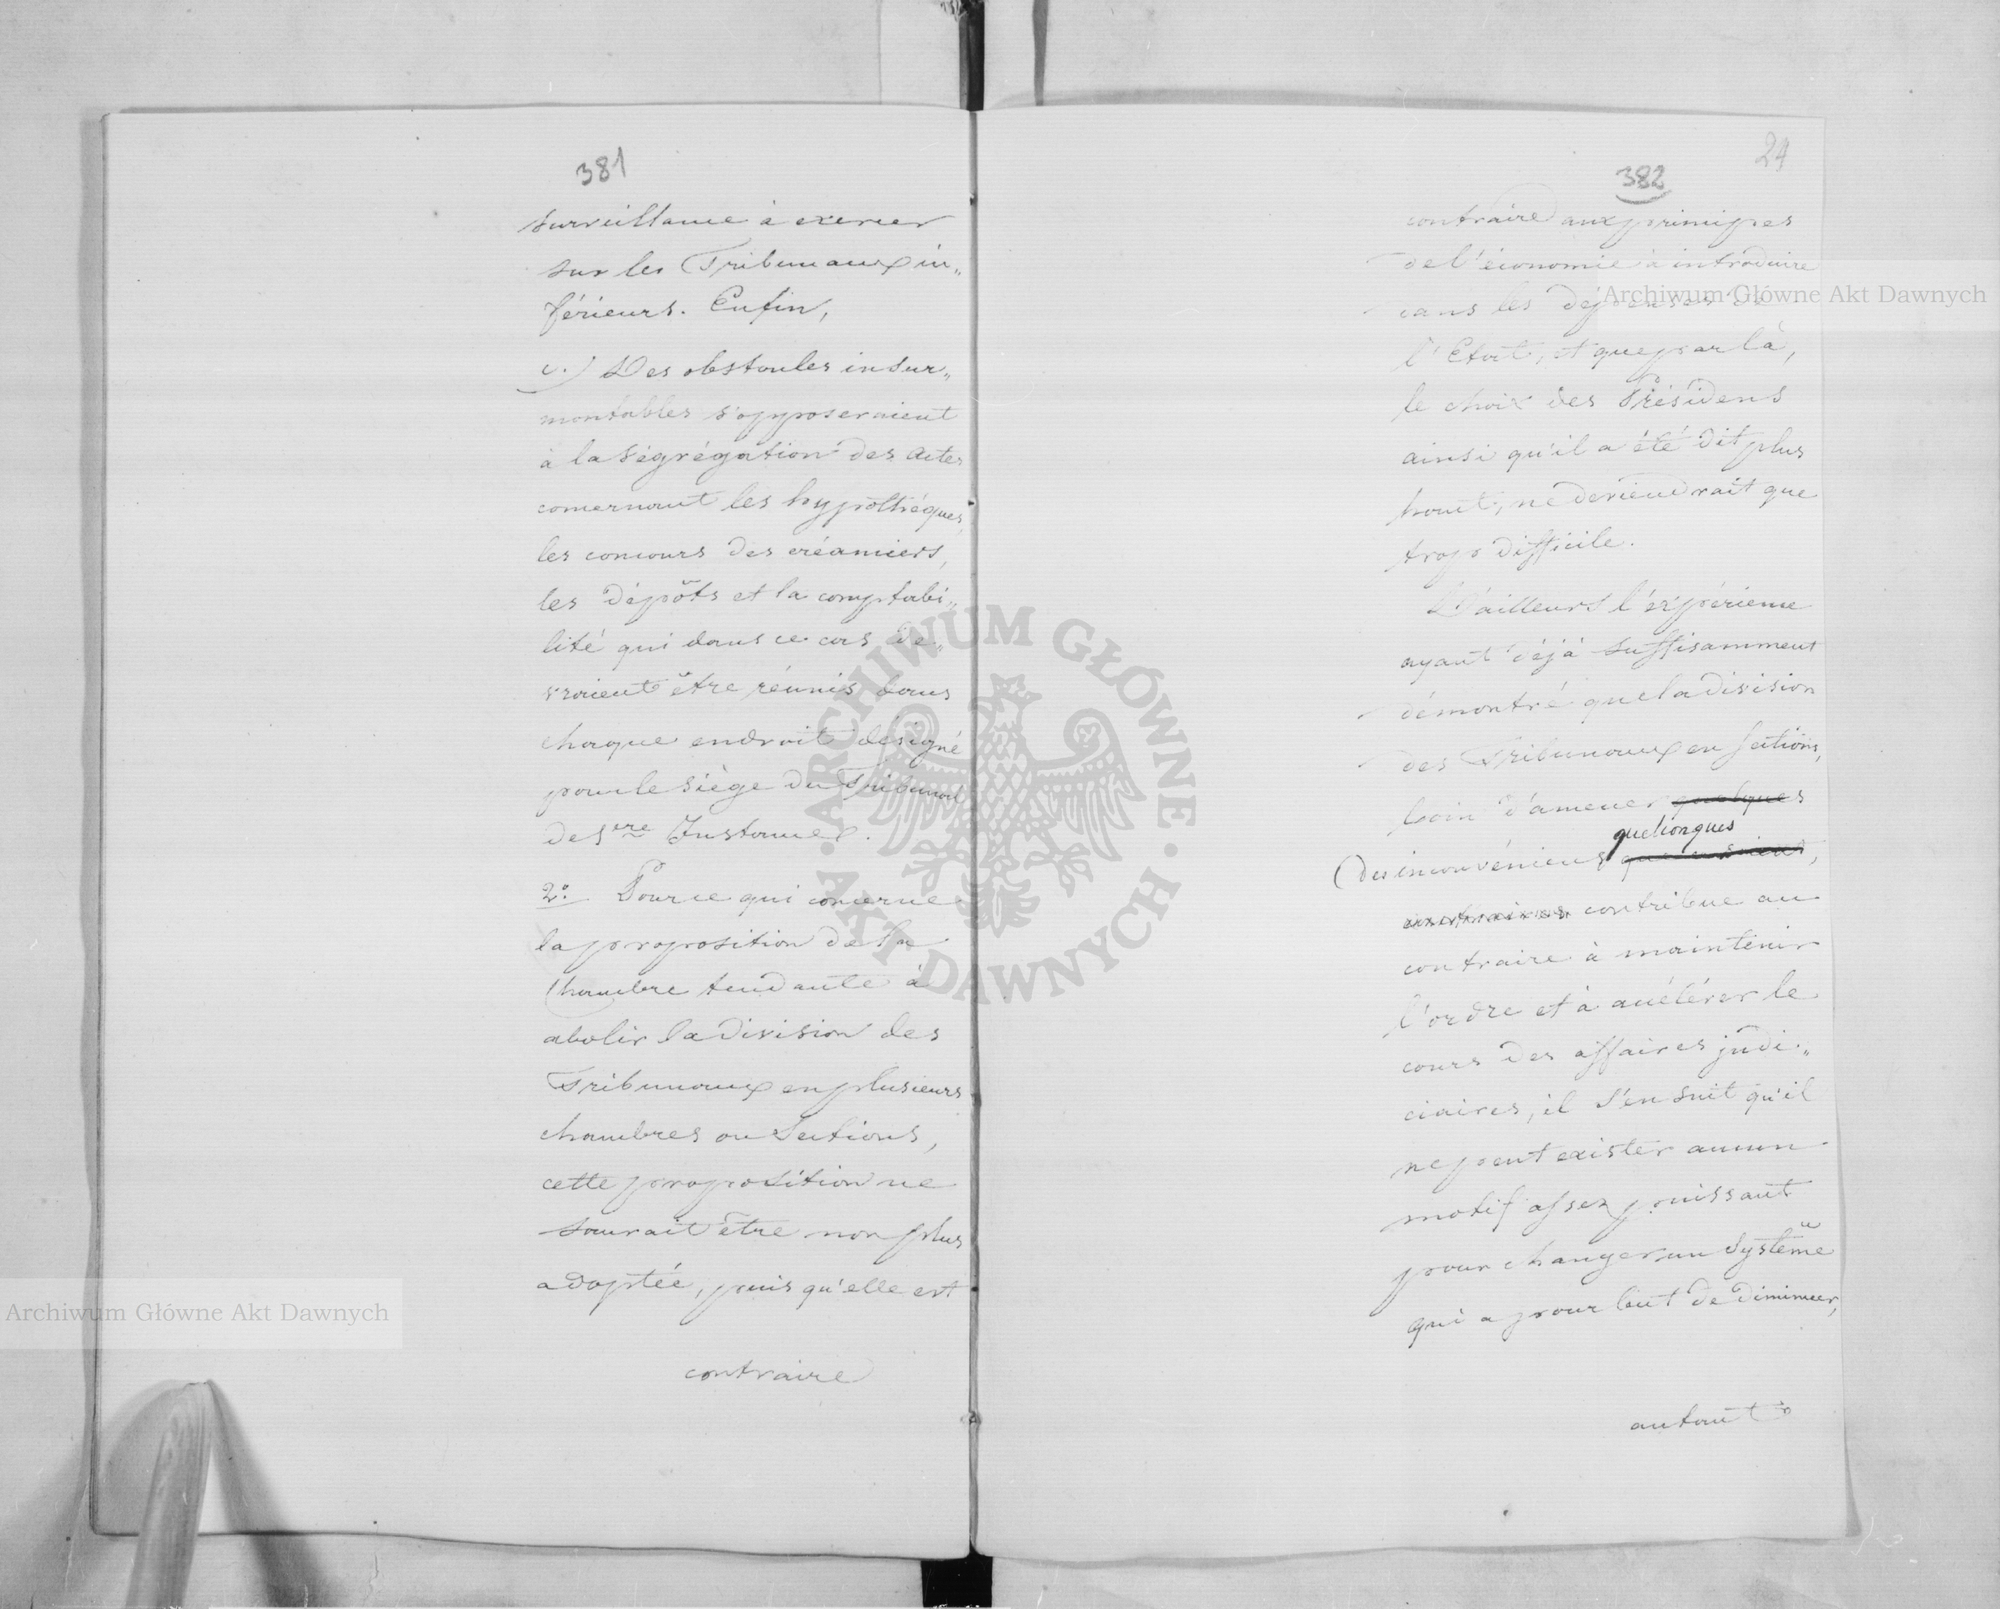 381
surveillance à exercer
sur les Tribunaux in„
férieurs. Enfin,
c.) Des obstacles insur„
montables s'opposeraient
à la ségrégation des actes
concernant les hypothéques,
les concours des créanciers,
les dépôts et la comptabi„
lité qui dans ce cas de„
vraient être réunis dans
chaque endroit désigné
pour le siège du Tribunal
de 1ere Instance.
2o. Pour ce qui concerne
la proposition de la
Chambre tendante à
abolir la division des
Tribunaux en plusieurs
chambres ou Sections,
cette proposition ne
saurait être non plus
adoptée, puis qu'elle est
contraire
24
382
contraire aux principes
de l'économie à introduire
dans les dépenses de
l'Etat, et que par là,
le choix des Présidens
ainsi qu'il a été dit plus
haut, ne deviendrait que
trop difficile.
D'ailleurs l'expérience
ayant déjà suffisamment
démontré que la division
des Tribunaux en Sections,
loin d'amener quelques
quelconques
des inconvéniens
contribue au
contraire à maintenir
l'ordre et à accélérer le
cours des affaires judi„
ciaires, il s'en suit qu'il
ne peut exister aucun
motif assez puissant
pour changer un Système
qui a pour but de diminuer,
autant
Archiwum Główne Akt Dawnych
Archiwum Główne Akt Dawnych
ARCHIWUM GŁÓWNE · AKT DAWNYCH ·